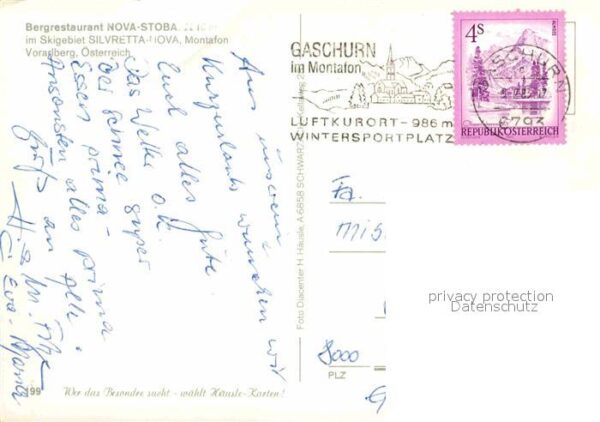 Bergrestaurant NOVA-STOBA
im Skigebiet SILVRETTA-NOVA, Montafon
Vorarlberg, Österreich
GASCHURN
im Montafon
LUFTKURORT - 986 m
WINTERSPORTPLATZ
4S
REPUBLIK ÖSTERREICH
GASCHURN
6793
Aus unserem
Kurzurlaub wünschen wir
Euch alles Gute
Das Wetter o.k.
Der Schnee super
Essen prima -
Ansonsten alles prima
Grüß an Alle.
H. a. M. Fitze
Eva-Maria
Foto Diacenter H. Häusle, A 6858 SCHWARZ
Fa.
8000
PLZ
199
Wer das Besondre sucht - wählt Häusle-Karten!
privacy protection
Datenschutz